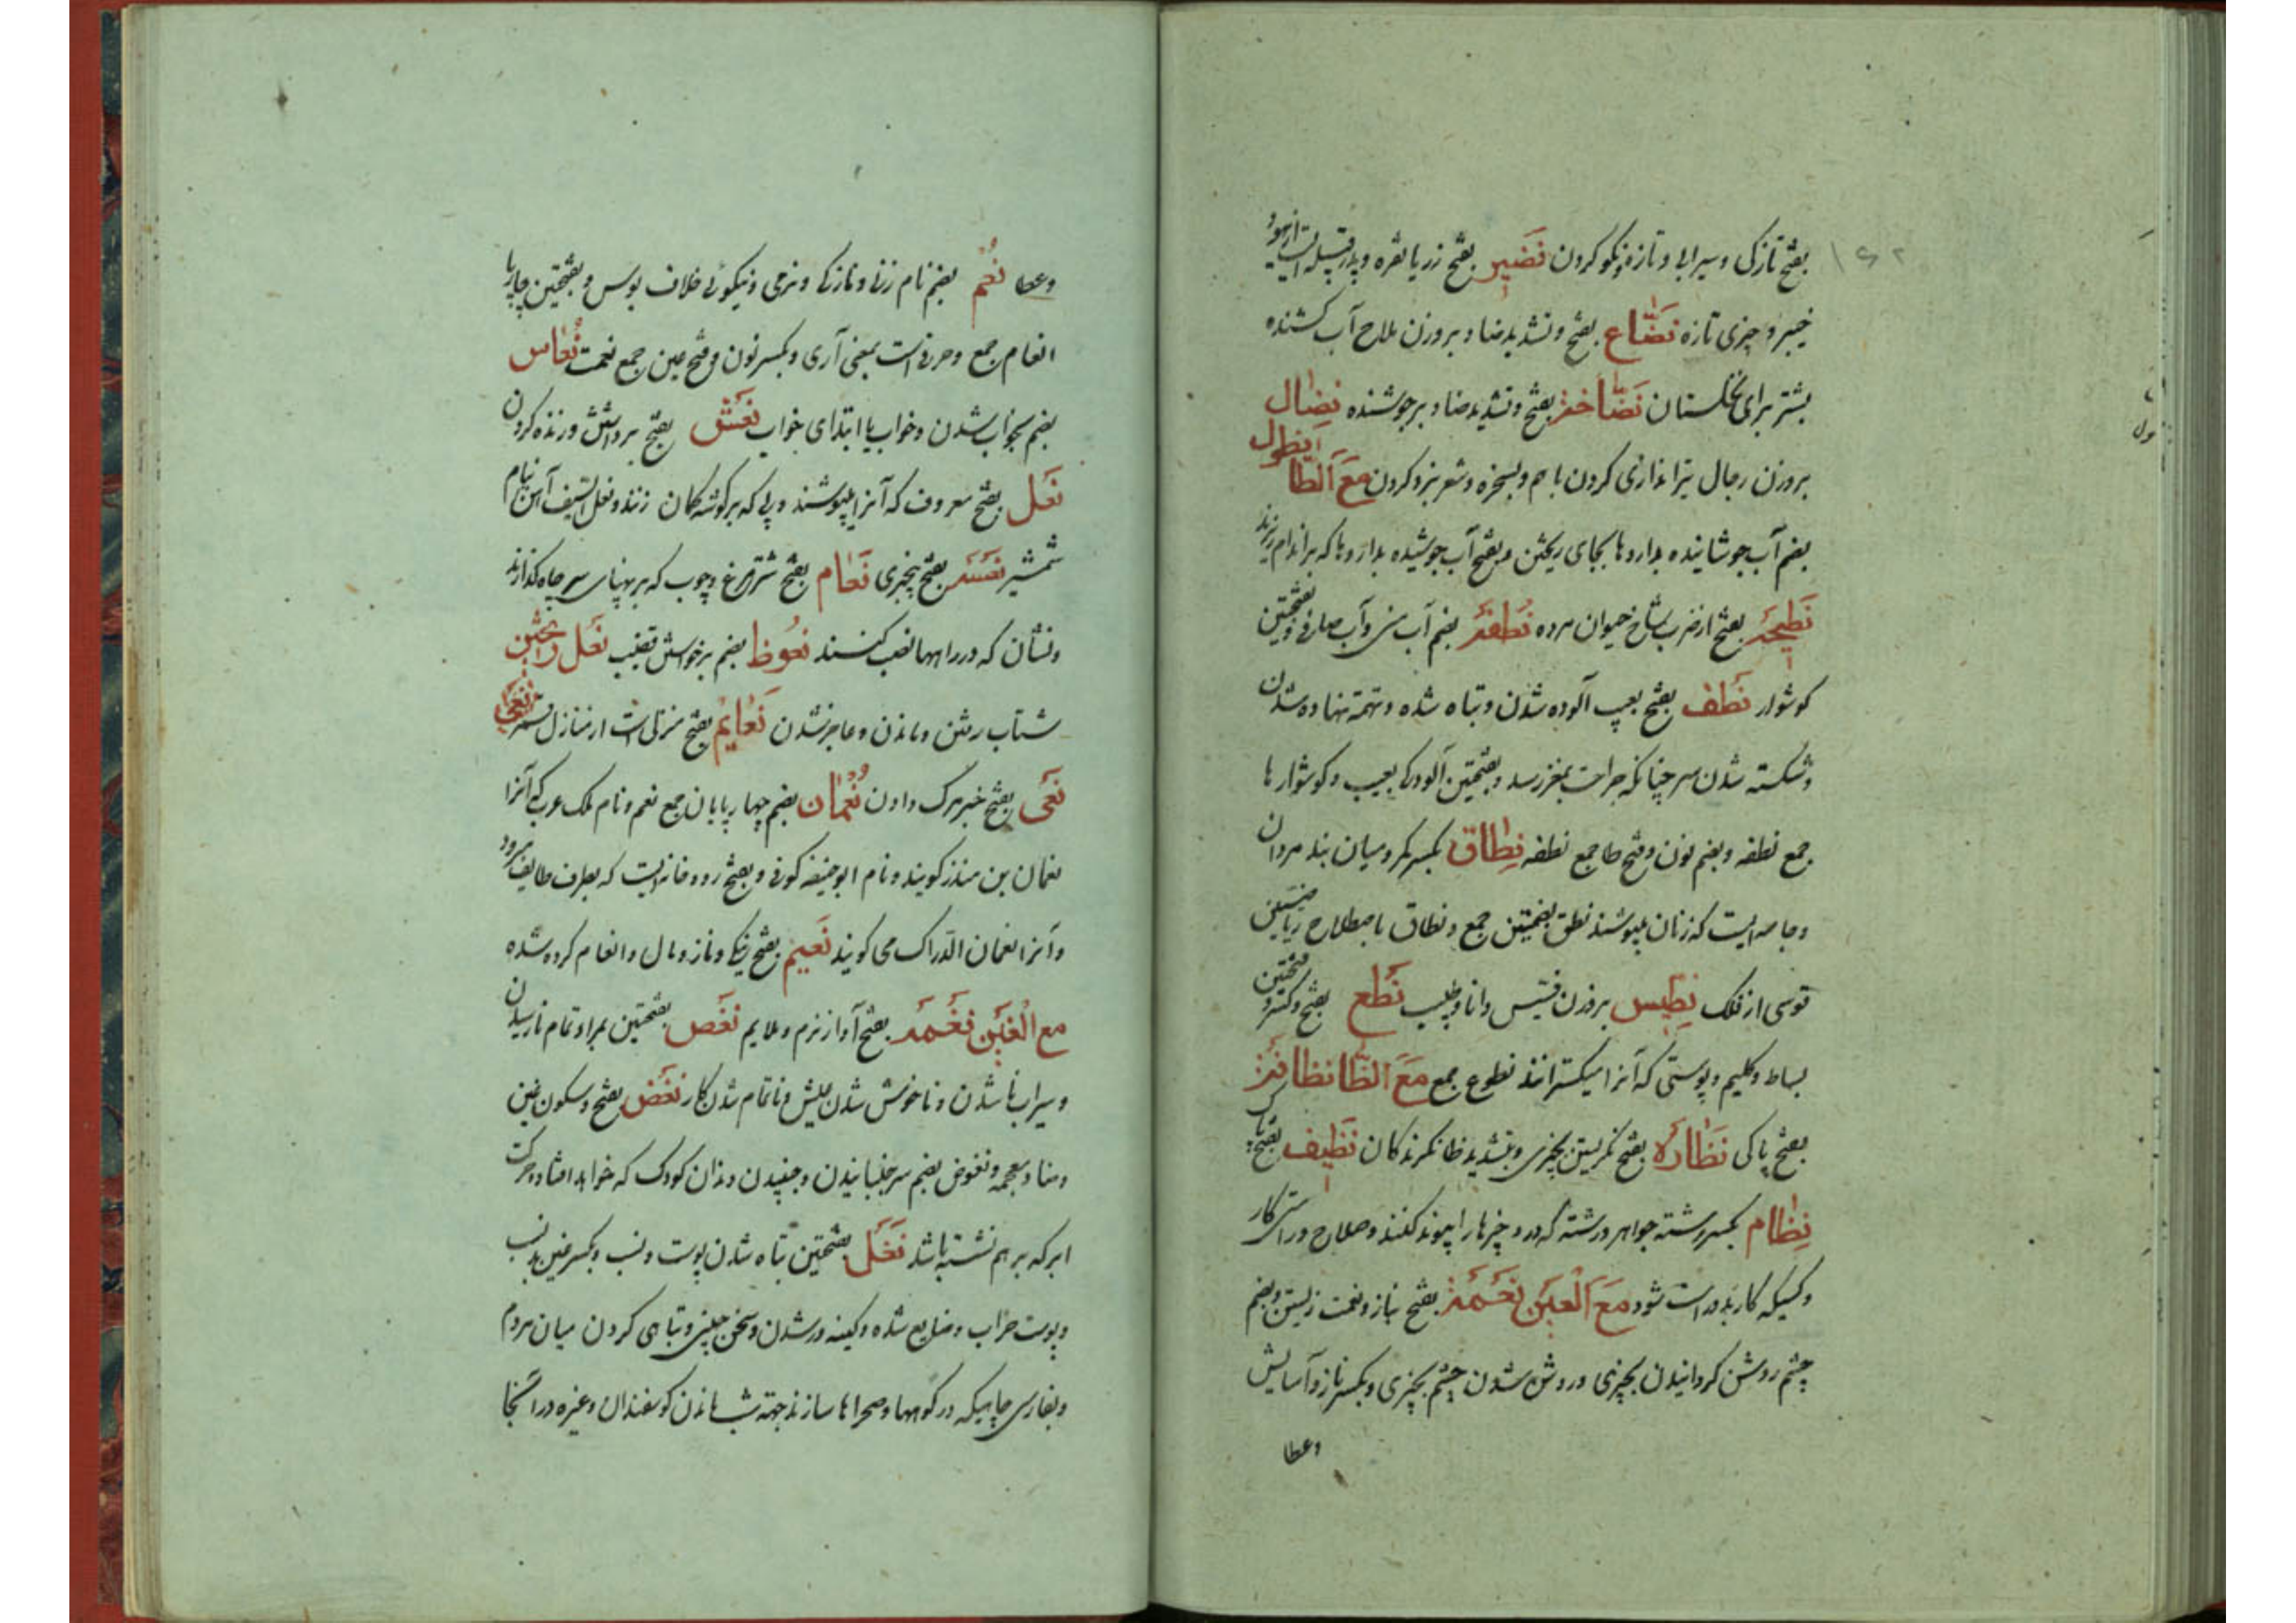 بفتح تازکی وسیرابی وتازه ونکو کردن نَضیر بفتح زر یا نقره وپدر قبیله ایست از یهود
خیبر وچیزی تازه نَضّاع بفتح وتشدید ضاد بر وزن ملاح آب کشنده
بشتر برای نخلستان نَضّاخة بفتح وتشدید ضاد بر جوشنده نِضال
بر وزن رجال تیراندازی کردن با هم وبسخره وشعر نبرد کردن مَعَ اَلطّا نطول
بضم آب جوشانیده بداروها بجای ریختن وبفتح آب جوشیده بداروها که بر اندام ریزند
نَطیحَة بفتح از ضرب شاخ حیوان مرده نُطفَة بضم آب منی وآب صافی وبفتحتین
کوشوار نَطَف بفتح بعیب آلوده شدن وتباه شده وتهمة نهاده شدن
وشکسته شدن سر چنانکه جراحت بمغز رسد وبفتحتین آلودکی بعیب وکوشوارها
جمع نطفه وبضم نون وفتح طا جمع نطفه نِطاق بکسر کمر ومیان بند مردان
وجامه ایست که زنان بپوشند نطق بضمتین جمع ونطاق باصطلاح ریاضیین
قوسی از فلک نِطّیس بر وزن قسیس دانا وطبیب نَطع بفتح وکسر وفتحتین
بساط وکلیم وپوستی که آنرا میکسترانند نطوع جمع مَعَ الظّا نظافَة
بفتح پاکی نَظّارَه بفتح نکریستن بچیزی وبتشدید ظا نکرندکان نَظیف بفتح پاک
نِظام بکسر رشته جواهر ورشته که در او چیزها را پیوند کنند وصلاح وراستی کار
وکسیکه کار بدو راست شود مَعَ اَلعَین نَعمَة بفتح بناز ونعمت زیستن وبضم
چشم روشن کردانیدن بچیزی وروشن شدن چشم بچیزی وبکسر ناز وآسایش
وعطا
۱۶۲
وعطا نُعْم بضم نام زنی ونازکی ونرمی ونیکوئی خلاف بوس وبفتحتین چارپا
انعام جمع وحرفی است بمعنی آری وبکسر نون وفتح عین جمع نعمت نُعاس
بضم بخواب شدن وخواب یا ابتدای خواب نَعش بفتح برداشتن وزنده کردن
نَعل بفتح معروف که آنرا بپوشند وپی که بر کوشه کمان زنند ونعل السیف آهن نیام
شمشیر بفتح پنجبری نَعام بفتح شترمرغ وچوب که بر پهنای سر چاه کذارند
ونشان که در راهها نصب کنند نعُوظ بضم برخواستن قضیب نَعَل
شتاب رفتن وماندن وعاجز شدن نَعایم بفتح منزلی است از منازل قمر
نَعی بفتح خبر مرک دادن نُعمان بضم چهارپایان جمع نعم ونام ملک عرب که آنرا
نعمان بن منذر کویند ونام ابو حنیفه کوفی وبفتح رودخانه ایست که بطرف طایف میرود
وآنرا نعمان الاراک می کویند نَعیم بفتح نیکی وناز ومال وانعام کرده شده
مع الْغَین نَغمَة بفتح آواز نرم وملایم نَغَص بفتحتین بمراد تمام نارسیدن
وسیراب ناشدن وناخوش شدن عیش وناتمام شدن کار نَغض بفتح وسکون غین
وضاد معجمه ونغوض بضم سر جنبانیدن وجنبیدن دندان کودک که خواهد افتاد وحرکت
ابر که بر هم نشسته باشد نَغَل بفتحتین تباه شدن پوست ونسب وبکسر غین بد نسب
وپوست خراب وضایع شده وکینه ور شدن وسخن چینی وتباهی کردن میان مردم
وبفارسی جاییکه در کوهها وصحراها سازند جهة شب ماندن کوسفندان وغیره در آنجا